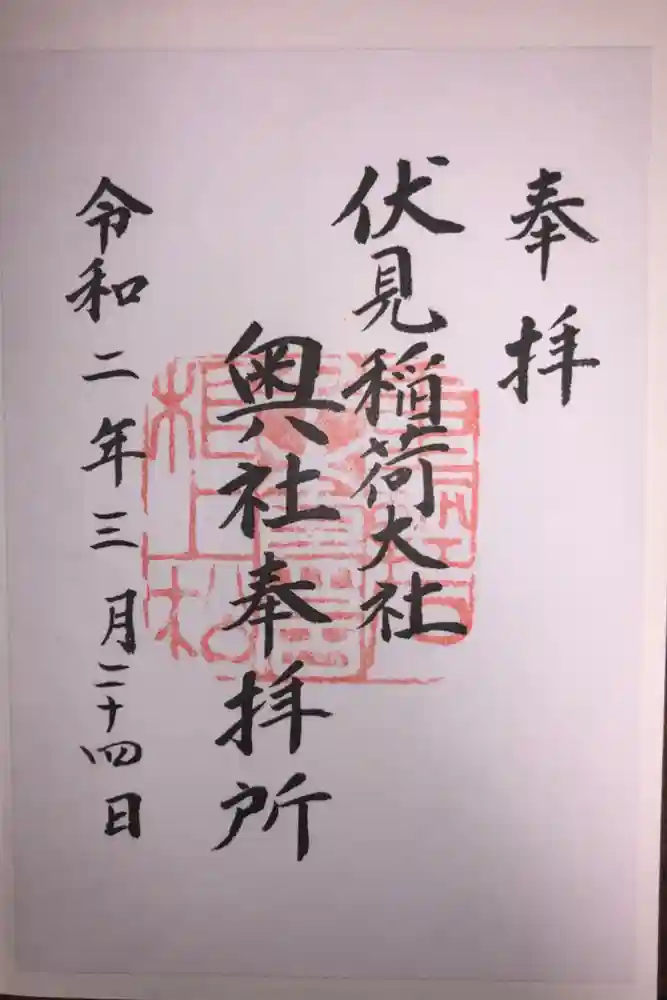 奉拝
伏見稲荷大社
奥社奉拝所
令和二年三月二十四日